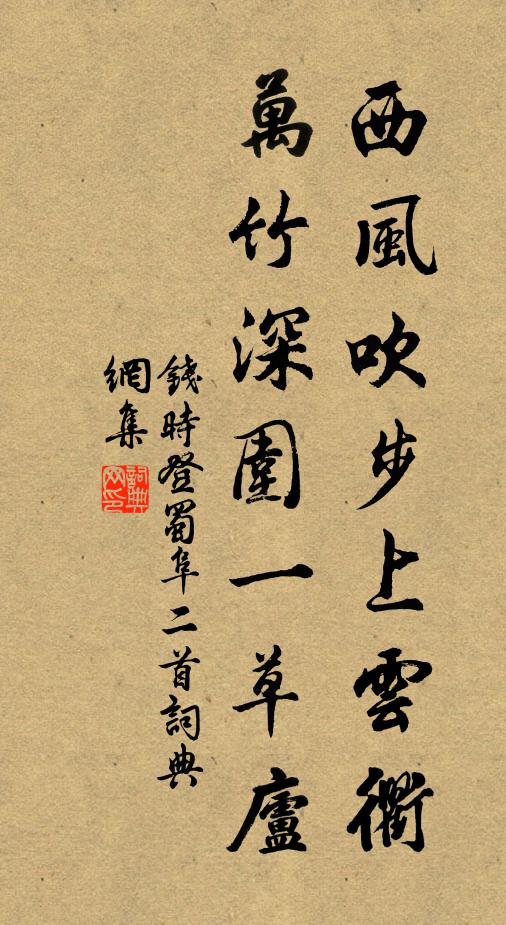 西風吹步上雲衢
萬竹深圍一草廬
錢時登蜀阜二首詞典
網集
詞典
網印